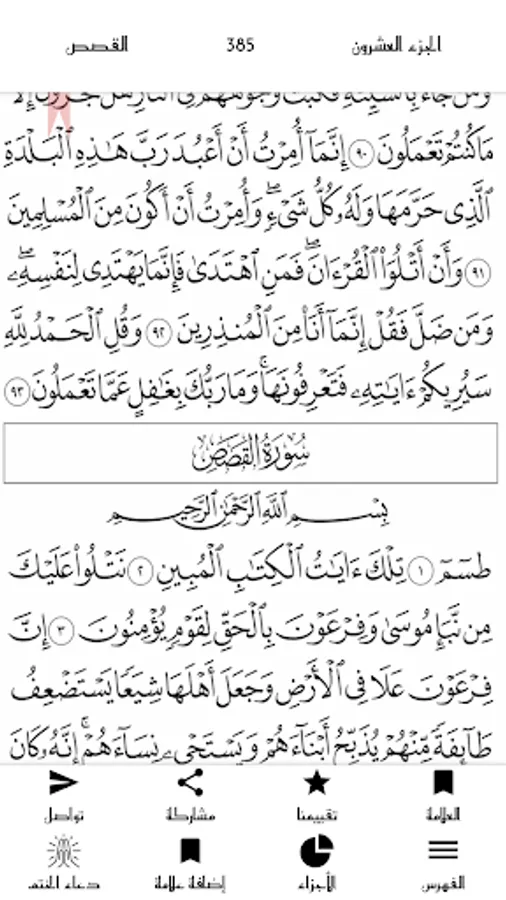 الجزء العشرون 385 القصص
وَمَن جَآءَ بِٱلسَّيِّئَةِ فَكُبَّتْ وُجُوهُهُمْ فِى ٱلنَّارِ هَلْ تُجْزَوْنَ إِلَّا
مَا كُنتُمْ تَعْمَلُونَ ٩٠ إِنَّمَآ أُمِرْتُ أَنْ أَعْبُدَ رَبَّ هَٰذِهِ ٱلْبَلْدَةِ
ٱلَّذِى حَرَّمَهَا وَلَهُۥ كُلُّ شَىْءٍ ۖ وَأُمِرْتُ أَنْ أَكُونَ مِنَ ٱلْمُسْلِمِينَ
٩١ وَأَنْ أَتْلُوَا۟ ٱلْقُرْءَانَ ۖ فَمَنِ ٱهْتَدَىٰ فَإِنَّمَا يَهْتَدِى لِنَفْسِهِۦ ۖ
وَمَن ضَلَّ فَقُلْ إِنَّمَآ أَنَا۠ مِنَ ٱلْمُنذِرِينَ ٩٢ وَقُلِ ٱلْحَمْدُ لِلَّهِ
سَيُرِيكُمْ ءَايَٰتِهِۦ فَتَعْرِفُونَهَا ۚ وَمَا رَبُّكَ بِغَٰفِلٍ عَمَّا تَعْمَلُونَ ٩٣
سُورَةُ القَصَصِ
بِسْمِ ٱللَّهِ ٱلرَّحْمَٰنِ ٱلرَّحِيمِ
طسٓمٓ ١ تِلْكَ ءَايَٰتُ ٱلْكِتَٰبِ ٱلْمُبِينِ ٢ نَتْلُوا۟ عَلَيْكَ
مِن نَّبَإِ مُوسَىٰ وَفِرْعَوْنَ بِٱلْحَقِّ لِقَوْمٍ يُؤْمِنُونَ ٣ إِنَّ
فِرْعَوْنَ عَلَا فِى ٱلْأَرْضِ وَجَعَلَ أَهْلَهَا شِيَعًا يَسْتَضْعِفُ
طَآئِفَةً مِّنْهُمْ يُذَبِّحُ أَبْنَآءَهُمْ وَيَسْتَحْىِۦ نِسَآءَهُمْ ۚ إِنَّهُۥ كَانَ
العلامة تقييمنا مشاركة تواصل
الفهرس الأجزاء إضافة علامة دعاء الختم